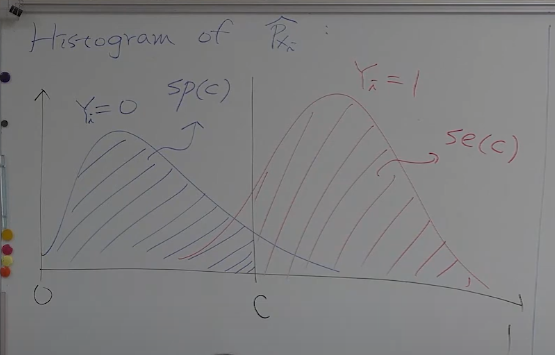 Histogram of P̂xᵢ :
Yᵢ = 0
sp(c)
Yᵢ = 1
se(c)
0
C
1